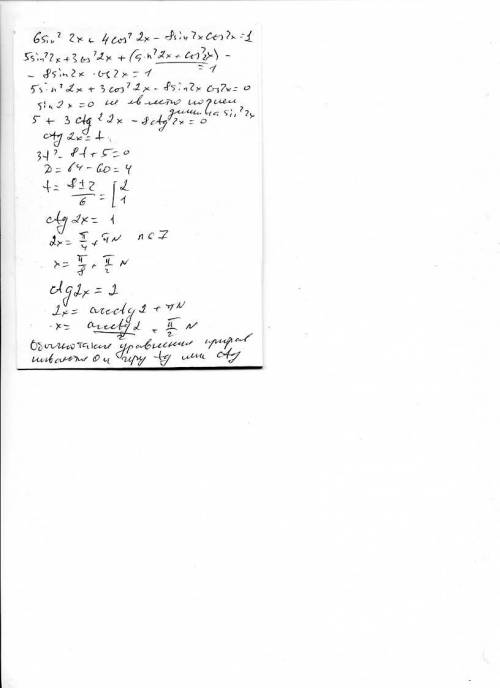 6sin² 2x + 4cos² 2x - 8sin 2x cos 2x = 1
5sin² 2x + 3cos² 2x + (sin² 2x + cos² 2x) -
= 1
- 8sin 2x · cos 2x = 1
5sin² 2x + 3cos² 2x - 8sin 2x cos 2x = 0
sin 2x = 0 не
делим на sin² 2x
5 + 3ctg² 2x - 8ctg 2x = 0
ctg 2x = t
3t² - 8t + 5 = 0
D = 64 - 60 = 4
t = 8±2/6 = [2 1
ctg 2x = 1
2x = π/4 + πN n∈Z
x = π/8 + π/2 N
ctg 2x = 2
2x = arcctg 2 + πN
x = arcctg 2/2 + π/2 N
Обычно такие уравнения
0 и через tg или ctg